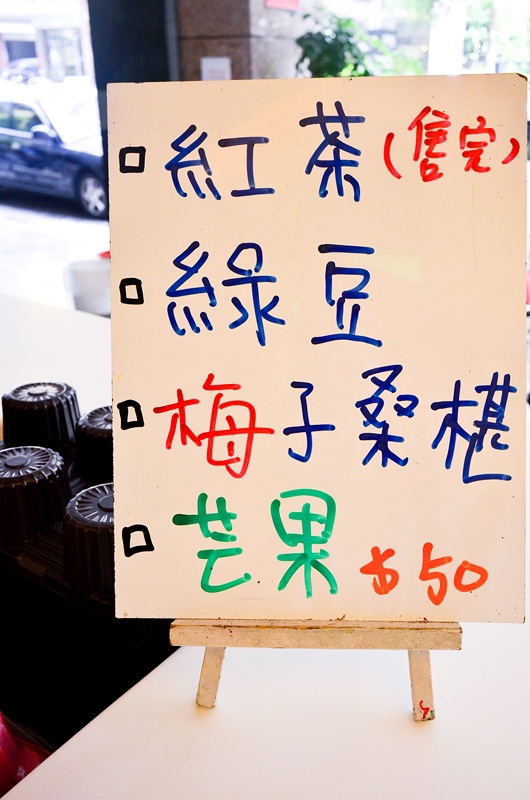 紅茶(售完)
綠豆
梅子桑椹
芒果 $50